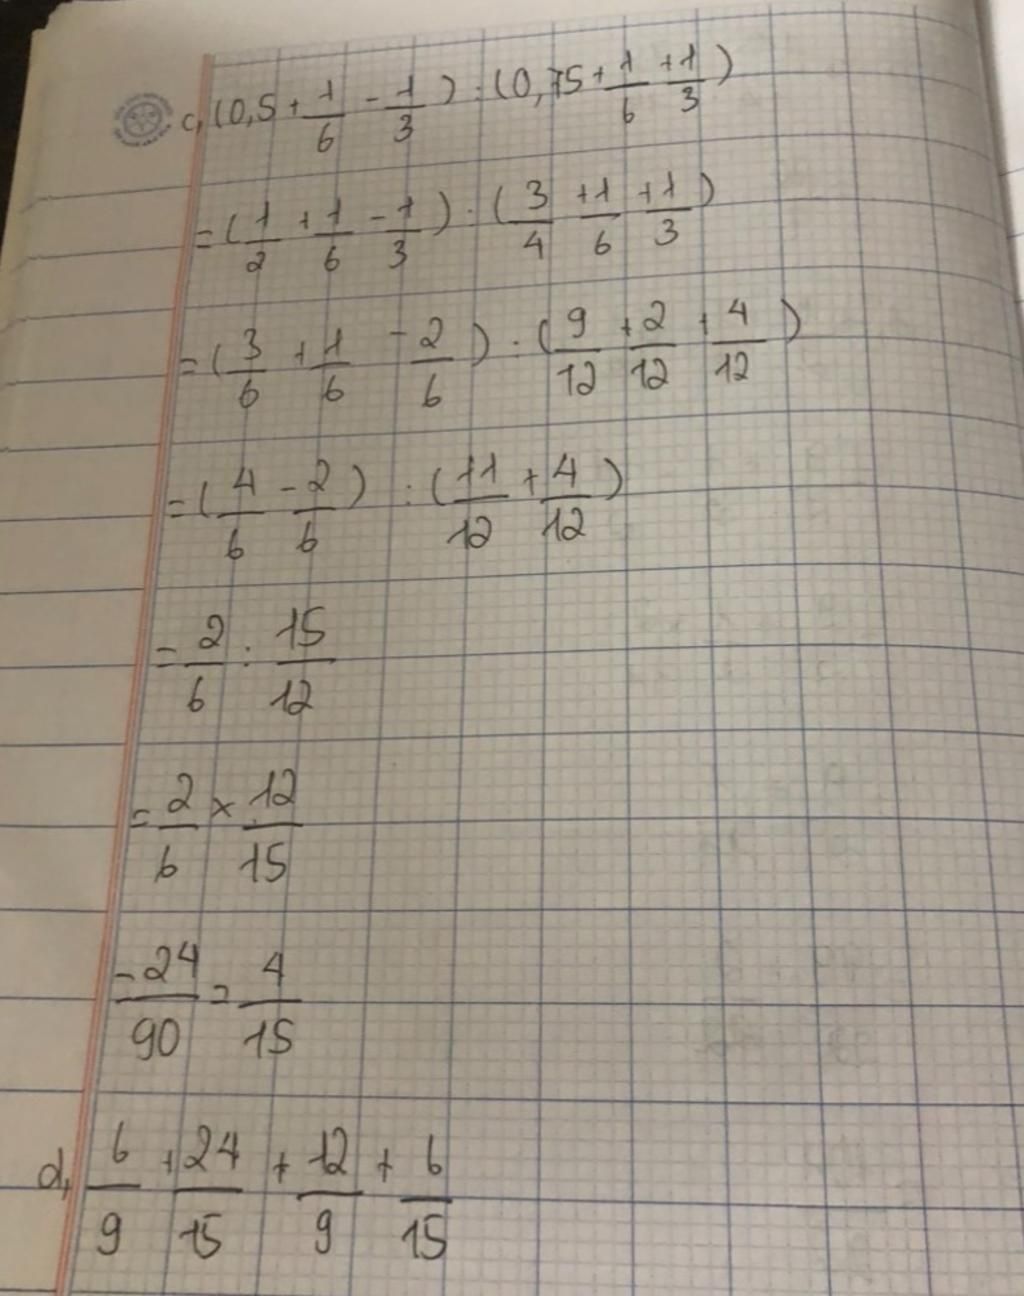 c, (0,5 + 1/6 - 1/3) : (0,75 + 1/6 + 1/3)
= (1/2 + 1/6 - 1/3) : (3/4 + 1/6 + 1/3)
= (3/6 + 1/6 - 2/6) : (9/12 + 2/12 + 4/12)
= (4/6 - 2/6) : (11/12 + 4/12)
= 2/6 : 15/12
= 2/6 × 12/15
= 24/90 = 4/15
d, 6/9 + 24/15 + 12/9 + 6/15